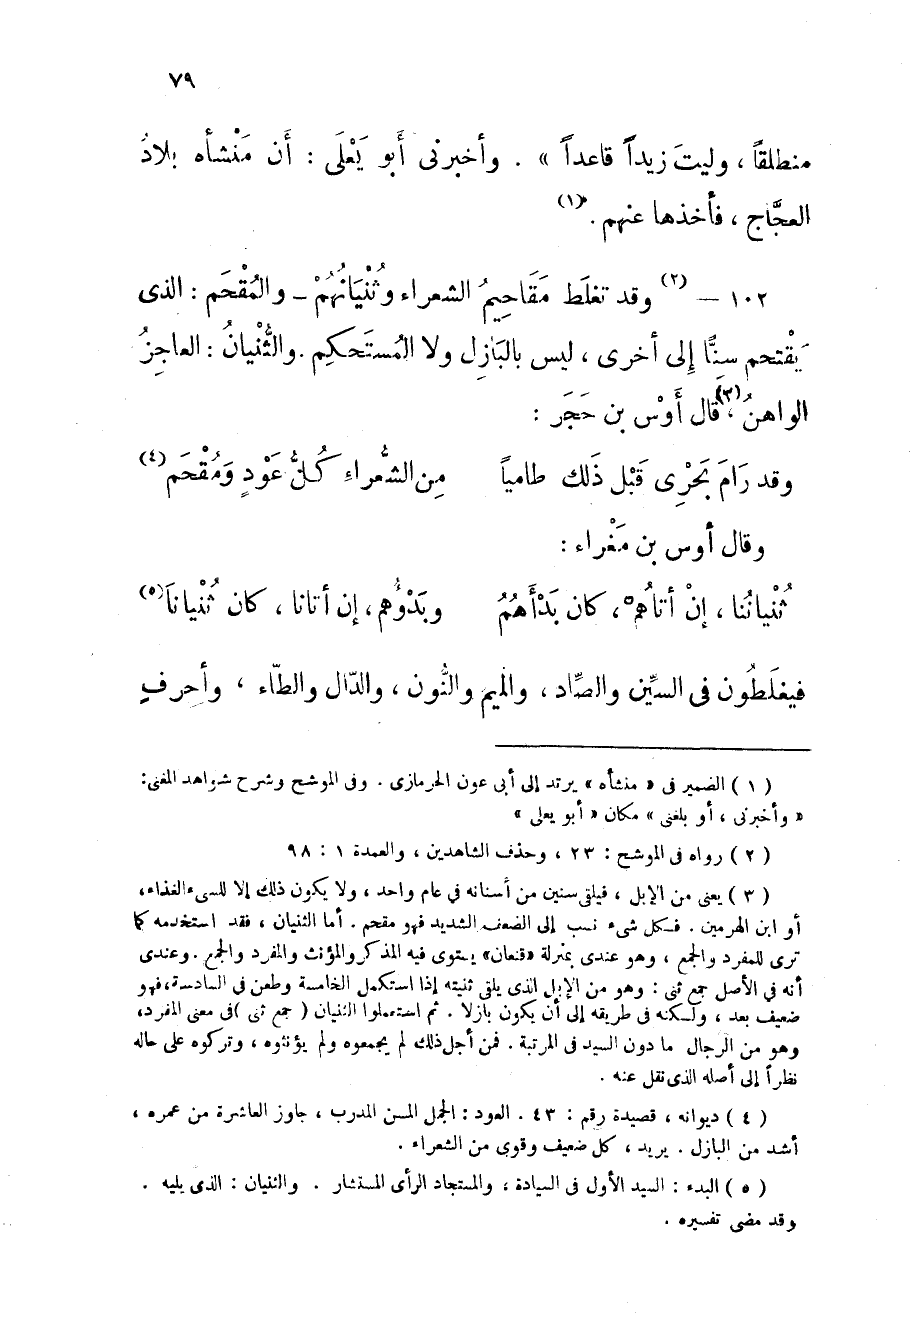 ٧٩
منطلقاً ، وليتَ زيداً قاعداً » . وأخبرنى أَبو يَعْلَى : أَن مَنْشأه بلادُ
العجَّاج ، فأخذها عنهم .(١)
١٠٢ – (٢) وقد تغلَط مَقَاحِيمُ الشعراء وثُنْيَانُهُمْ – والمُقْحَم : الذى
يَقْتحم سِنًّا إلى أخرى ، ليس بالبَازِل ولا المُستَحكِم . والثُّنْيانُ : العاجِزُ
الواهنُ ،(٣) قال أَوْس بن حَجَر :
وقد رَامَ بَحْرِى قَبْل ذَلك طامياً مِن الشُّعراءِ كُلُّ عَوْدٍ وَمُقْحَم(٤)
وقال أوس بن مَغْراء :
ثُنْيانُنا ، إنْ أتاهُم ، كان بَدْأَهُمُ وبَدْؤُهم ، إن أتانا ، كان ثُنْيانَا(٥)
فيغلَطُون فى السِّين والصِّاد ، والميم والنُّون ، والدّال والطّاء ، وأحرفٍ
( ١ ) الضمير فى « منشأه » يرتد إلى أبى عون الحرمازى . وفى الموشح وشرح شواهد المغنى :
« وأخبرنى ، أو بلغنى » مكان « أبو يعلى »
( ٢ ) رواه فى الموشح : ٢٣ ، وحذف الشاهدين ، والعمدة ١ : ٩٨
( ٣ ) يعنى من الإبل ، فيلقى سنين من أسنانه في عام واحد ، ولا يكون ذلك إلا للسىء الغذاء ،
أو ابن الهرمين . فكل شىء نسب إلى الضعف الشديد فهو مقحم . أما الثنيان ، فقد استخدمه كما
ترى للمفرد والجمع ، وهو عندى بمنزلة «قنعان» يستوى فيه المذكر والمؤنث والمفرد والجمع . وعندى
أنه في الأصل جمع ثنى : وهو من الإبل الذى يلقى ثنيته إذا استكمل الخامسة وطعن فى السادسة ، فهو
ضعيف بعد ، ولكنه فى طريقه إلى أن يكون بازلا . ثم استعملوا الثنيان ( جمع ثنى ) فى معنى المفرد ،
وهو من الرجال ما دون السيد فى المرتبة . فمن أجل ذلك لم يجمعوه ولم يؤنثوه ، وتركوه على حاله
نظراً إلى أصله الذى نقل عنه .
( ٤ ) ديوانه ، قصيدة رقم : ٤٣ . العود : الجمل المسن المدرب ، جاوز العاشرة من عمره ،
أشد من البازل . يريد ، كل ضعيف وقوى من الشعراء .
( ٥ ) البدء : السيد الأول فى السيادة ، والمستجاد الرأى المستشار . والثنيان : الذى يليه .
وقد مضى تفسيره .